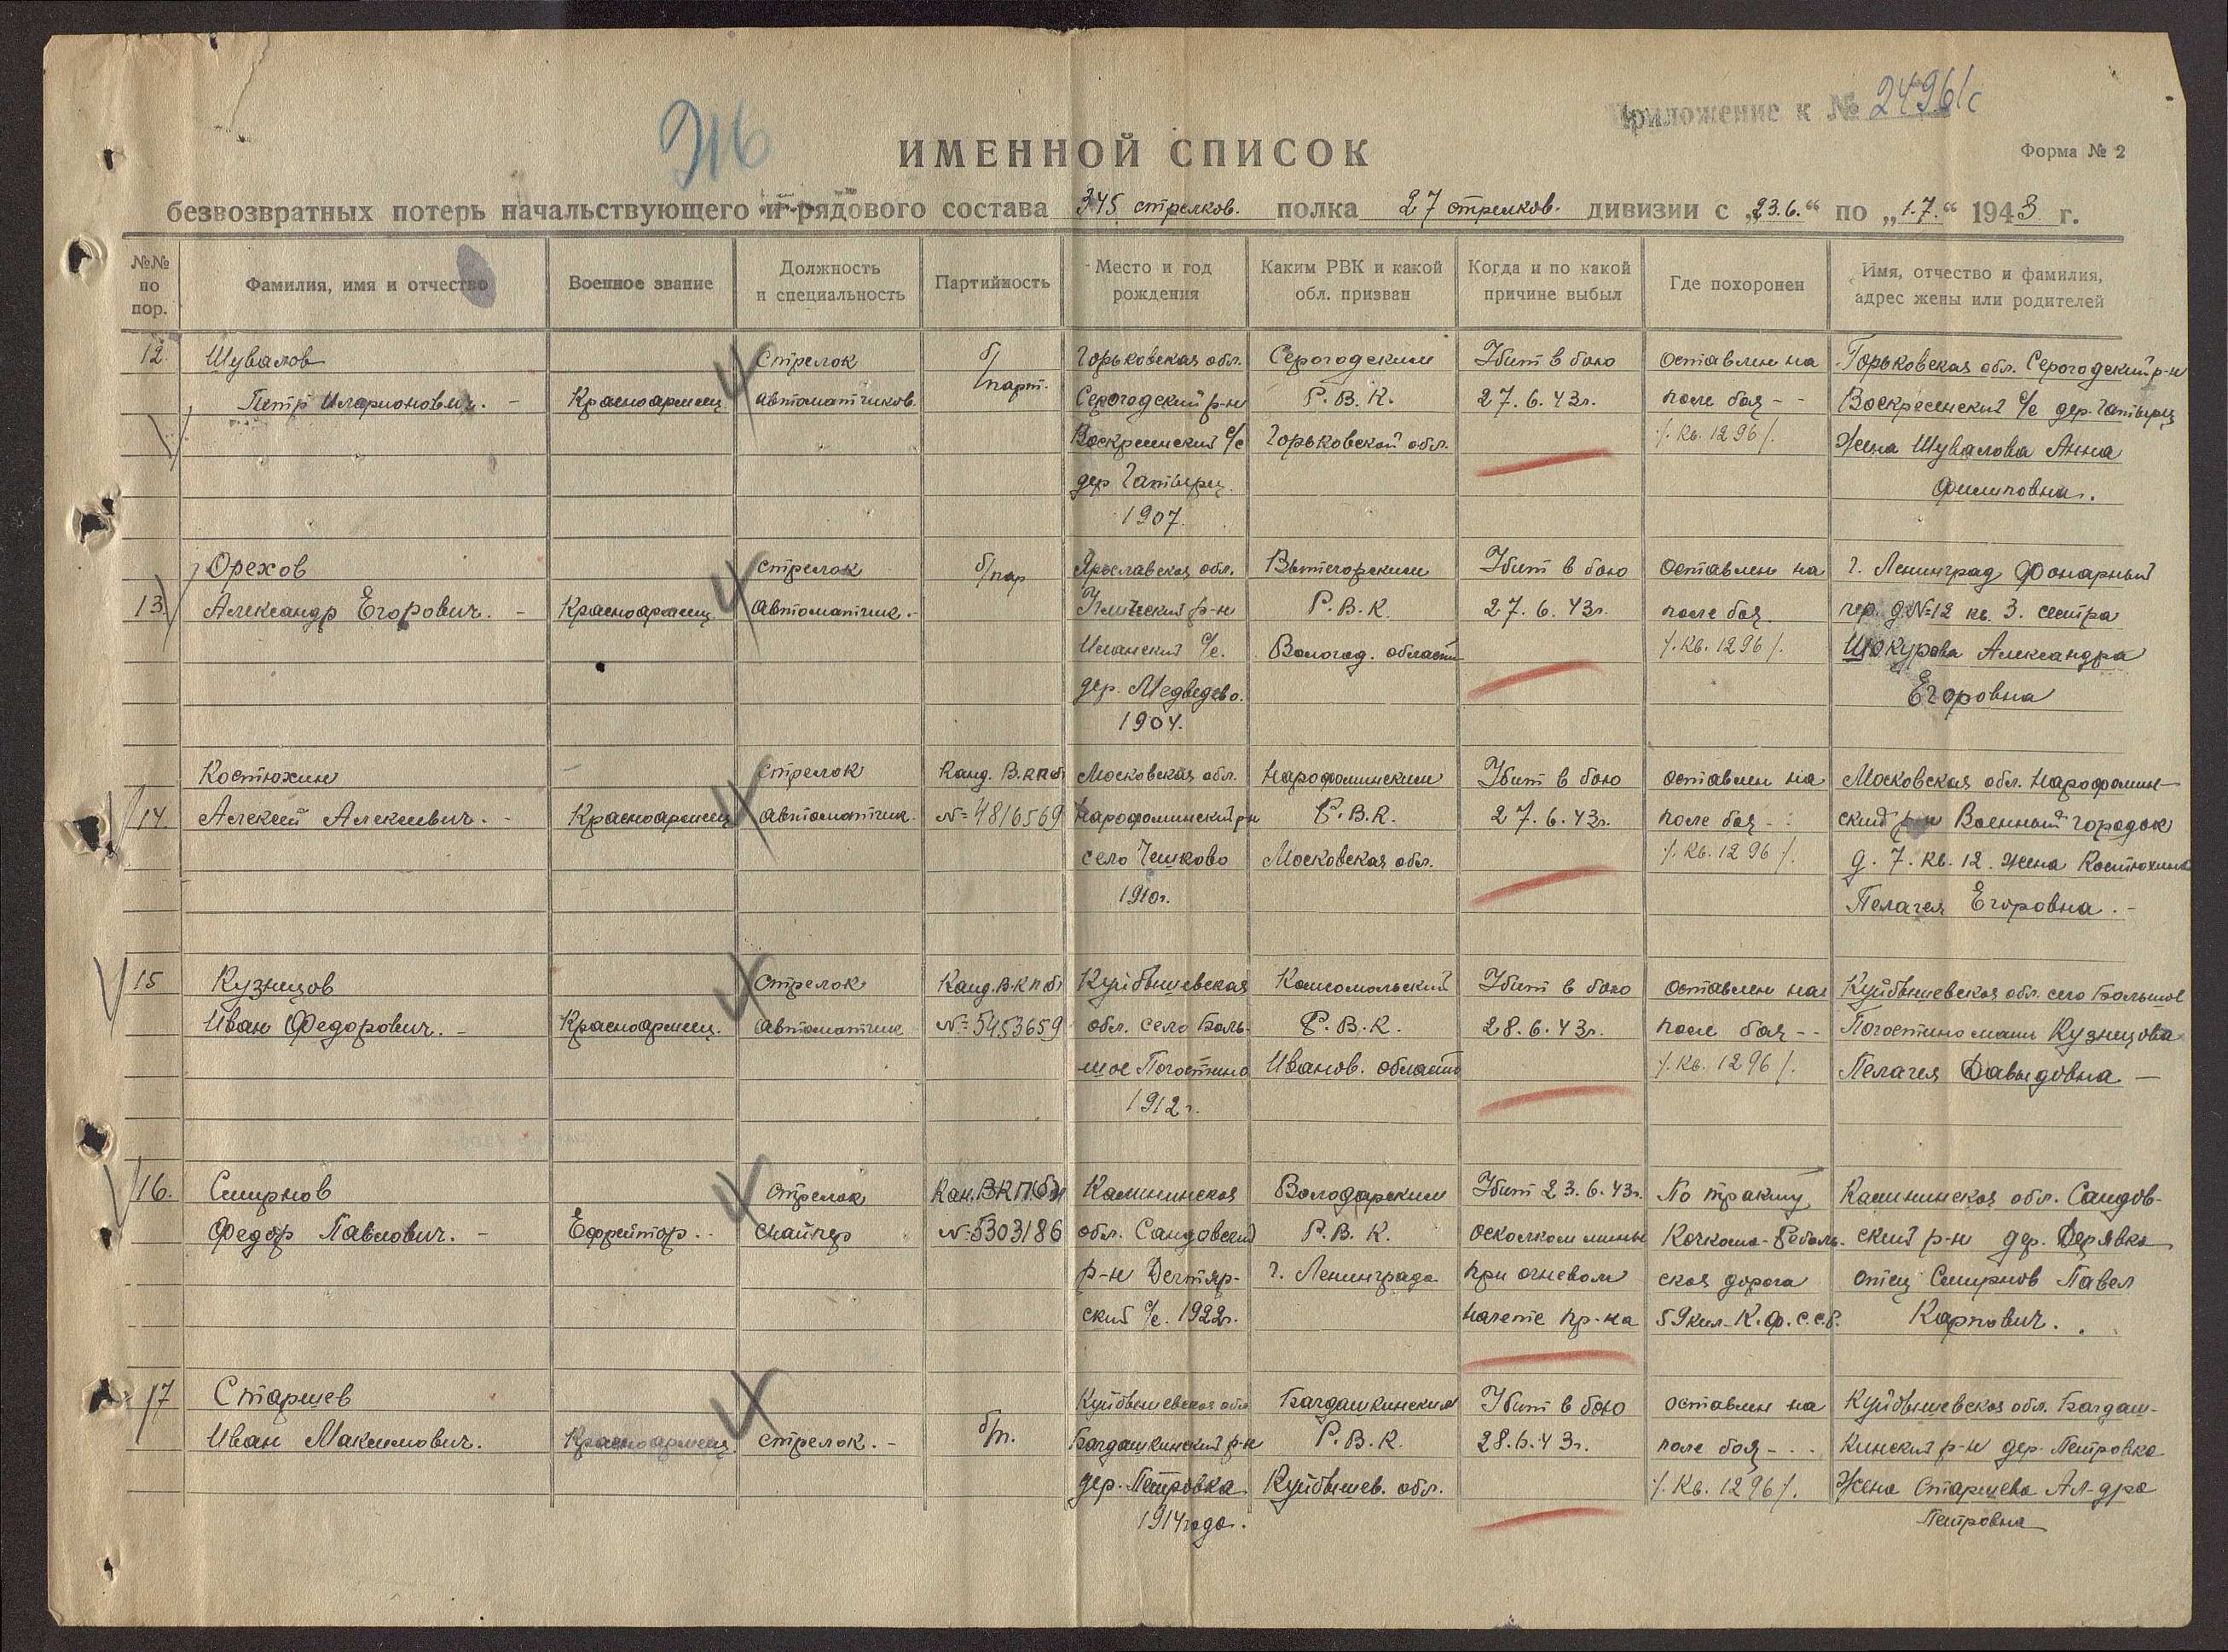 Приложение к № 2496/с
316
ИМЕННОЙ СПИСОК
Форма № 2
безвозвратных потерь начальствующего и рядового состава 345 стрелков. полка 27 стрелков. дивизии с „23.6.“ по „1.7.“ 1943 г.
№№ по пор.
Фамилия, имя и отчество
Военное звание
Должность и специальность
Партийность
Место и год рождения
Каким РВК и какой обл. призван
Когда и по какой причине выбыл
Где похоронен
Имя, отчество и фамилия, адрес жены или родителей
12.
Шувалов
Петр Иларионович. -
Красноармеец
Стрелок
автоматчиков.
б/
парт.
Горьковская обл.
Серогодский р-н
Воскресенский с/с
дер. Гатырец.
1907.
Серогодским
Р.В.К.
Горьковской обл.
Убит в бою
27.6.43г.
оставлен на
поле боя - -
/. кв. 1296 /.
Горьковская обл. Серогодский р-н
Воскресенский с/с дер. Гатырец
Жена Шувалова Анна
Филиповна.
13.
Орехов
Александр Егорович. -
Красноармеец
стрелок
Автоматчик. -
б/пар
Ярославская обл.
р-н
с/с.
дер. Медведево.
1904.
Вытегорским
Р.В.К.
Вологод. области
Убит в бою
27.6.43г.
оставлен на
поле боя.
/. кв. 1296 /.
г. Ленинград Фонарный
пер. д.№12 кв. 3. сестра
Шокурова Александра
Егоровна
14.
Костюхин
Алексей Алексеевич. -
Красноармеец
стрелок
Автоматчик.
Канд. В.КПб
№ 4816569
Московская обл.
Нарофоминский р-н
село Чешково
1910г.
Нарофоминским
Р.В.К.
Московская обл.
Убит в бою
27.6.43г.
оставлен на
поле боя -
/. кв. 1296 /.
Московская обл. Нарофомин-
ский р-н Военный городок
д. 7. кв. 12. жена Костюхина
Пелагея Егоровна. -
15
Кузнецов
Иван Федорович. -
Красноармеец.
Стрелок
Автоматчик
Канд. В.К п б
№ 5453659
Куйбышевская
обл. село Боль-
шое Погостино
1912г.
Комсомольский
Р.В.К.
Иванов. области
Убит в бою
28.6.43г.
оставлен на
поле боя - -
/. кв. 1296 /.
Куйбышевская обл. село Большое
Погостино мать Кузнецова
Пелагея Давыдовна -
16.
Смирнов
Федор Павлович. -
Ефрейтор. -
Стрелок
снайпер
Кан. ВКП.б
№ 5303186
Калининская
обл. Сандовский
р-н Дегтяр-
ский с/с. 1922г.
Володарским
Р.В.К.
г. Ленинграда
Убит 23.6.43г.
осколком мины
при огневом
налете пр-ка
По тракту
Кочкома-Реболь-
ская дорога
59 кил. К.Ф.С.С.Р.
Калининская обл. Сандов-
ский р-н дер. Дерявка
отец Смирнов Павел
Карпович.
17
Старшев
Иван Максимович.
Красноармеец
стрелок. -
б/п.
Куйбышевская обл
Багдашкинский р-н
дер. Петровка
1914 года.
Багдашкинский
Р.В.К.
Куйбышев. обл.
Убит в бою
28.6.43г.
оставлен на
поле боя - -
/. кв. 1296 /.
Куйбышевская обл. Багдаш-
кинский р-н дер. Петровка
Жена Старшева Ал-дра
Петровна